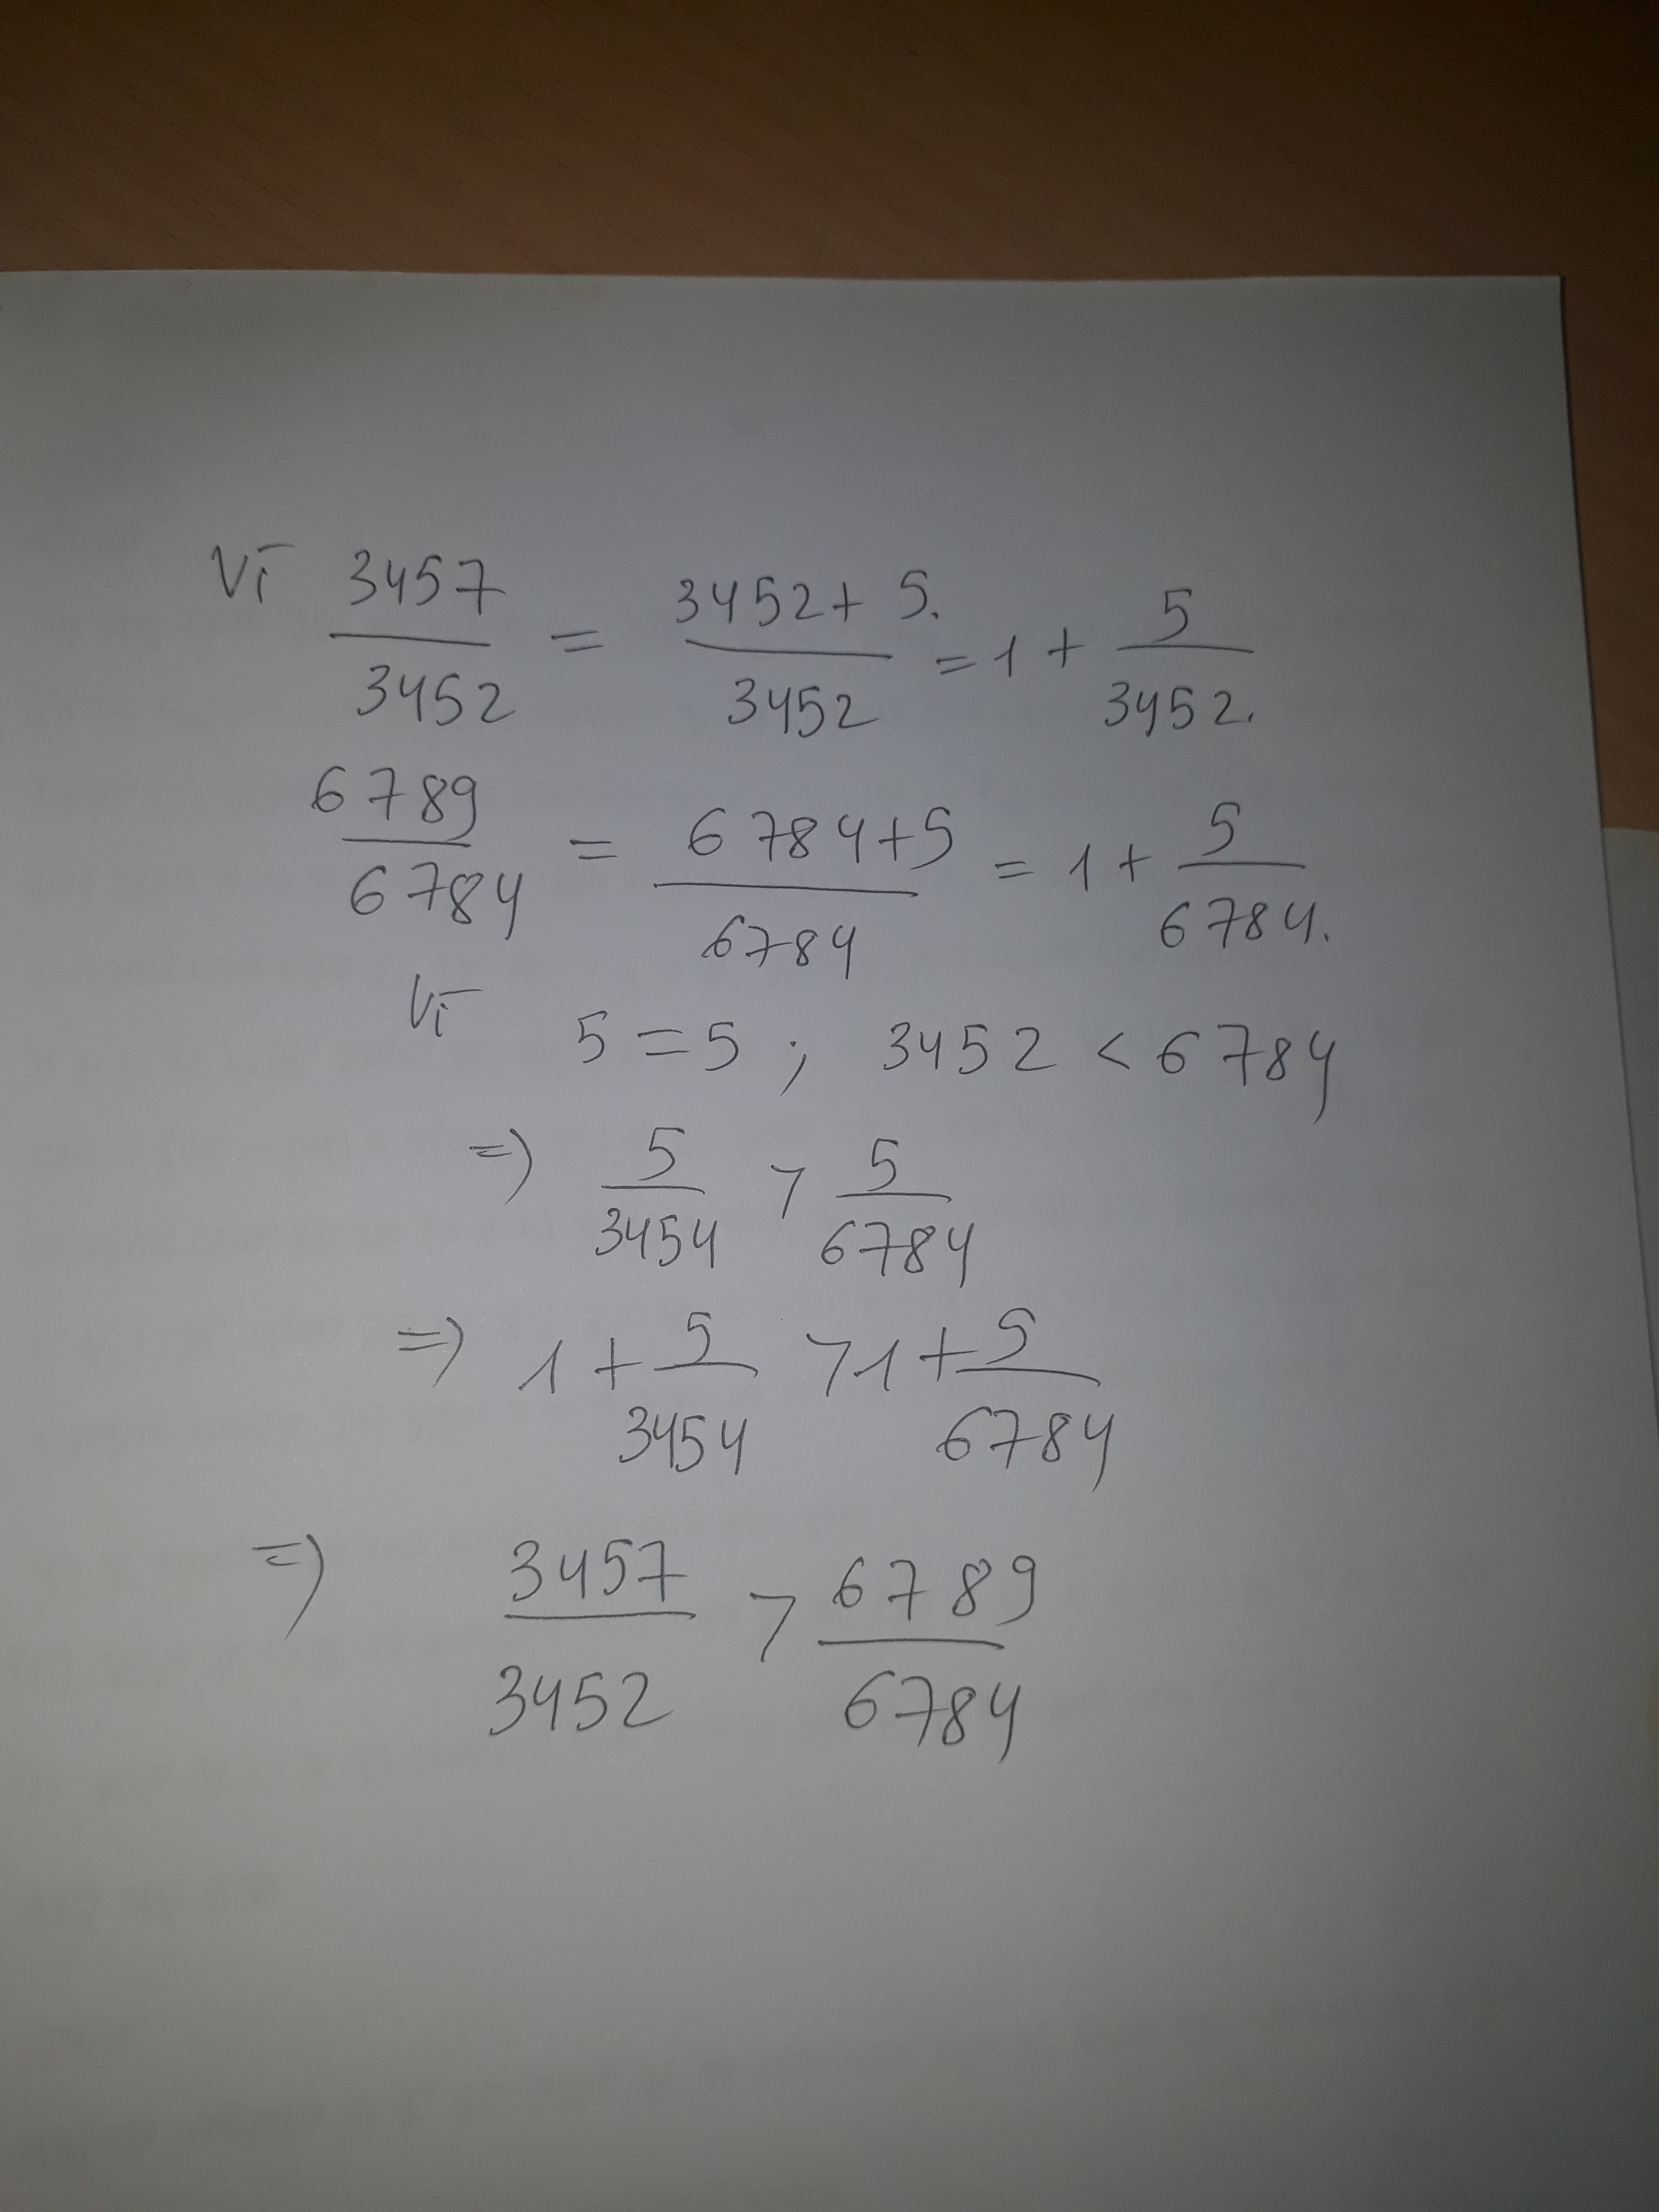 Vì 3457/3452 = 3452+5./3452 = 1 + 5/3452.
6789/6784 = 6784+5/6784 = 1 + 5/6784.
Vì 5 = 5 ; 3452 < 6784
=) 5/3454 > 5/6784
=) 1 + 5/3454 > 1 + 5/6784
=) 3457/3452 > 6789/6784